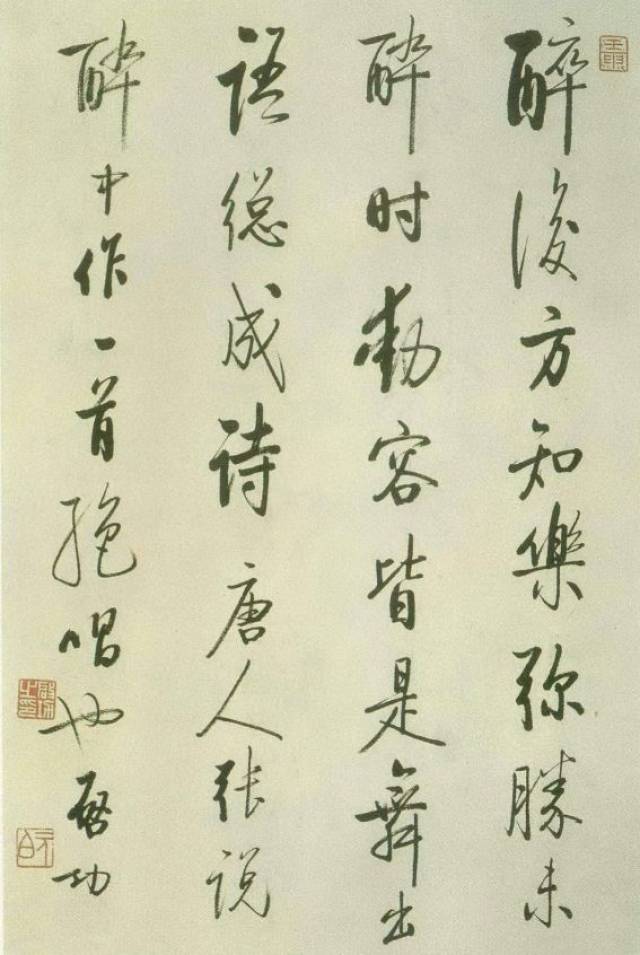 醉後方知樂弥勝未
醉时動容皆是舞出
語總成诗唐人张说
醉中作一首絶唱也启功